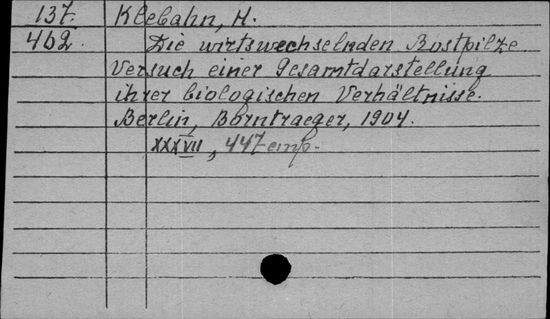 137. Klebahn, H.
462. Die wirtswechselnden Rostpilze.
Versuch einer Gesamtdarstellung
ihrer biologischen Verhältnisse.
Berlin, Borntraeger, 1904.
XXXVII, 447 стр.